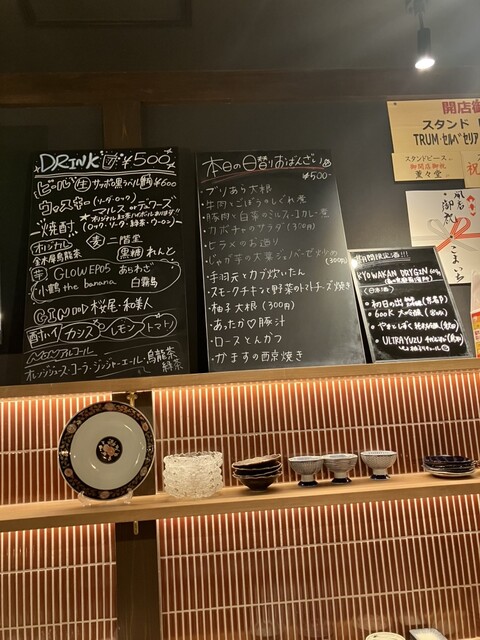 DRINK ¥500
ビール 生 サッポロ黒ラベル ¥600
ウイスキー(ソーダ・ロック)
デュワーズ
(ロック・ソーダ・緑茶・ウーロン)
焼酎
オリジナル
金木犀烏龍茶
麦 二階堂
黒糖 れんと
芋 GLOW EP05 あらわざ
小鶴 the banana 白霧島
GIN 桜尾・和美人
酎ハイ カシス レモン トマト
ノンアルコール
オレンジジュース・コーラ・ジンジャーエール・烏龍茶
緑茶
本日の日替りおばんざい
¥500-
・ブリあら大根
・牛肉とごぼうのしぐれ煮
・豚肉と白菜のミルフィーユカレー煮
・カボチャのサラダ(300円)
・ヒラメのお造り
・じゃが芋の大葉ジェノベーゼ炒め
(300円)
・手羽元とカブ炊いたん
・スモークチキンと野菜のトマトチーズ焼き
・柚子大根(300円)
・あったか♡豚汁
・ロースとんかつ
・かますの西京焼き
期間限定酒!!!
KYOWAKAN DRYGIN
(日本酒)
・初日の出
・600K
・やまとしずく 純米吟醸
・ULTRA YUZU
開店御
スタンド
TRUM・セルベセリア
スタンドピース
御開店御祝
菫々堂
祝
開店
御祝
こまいち